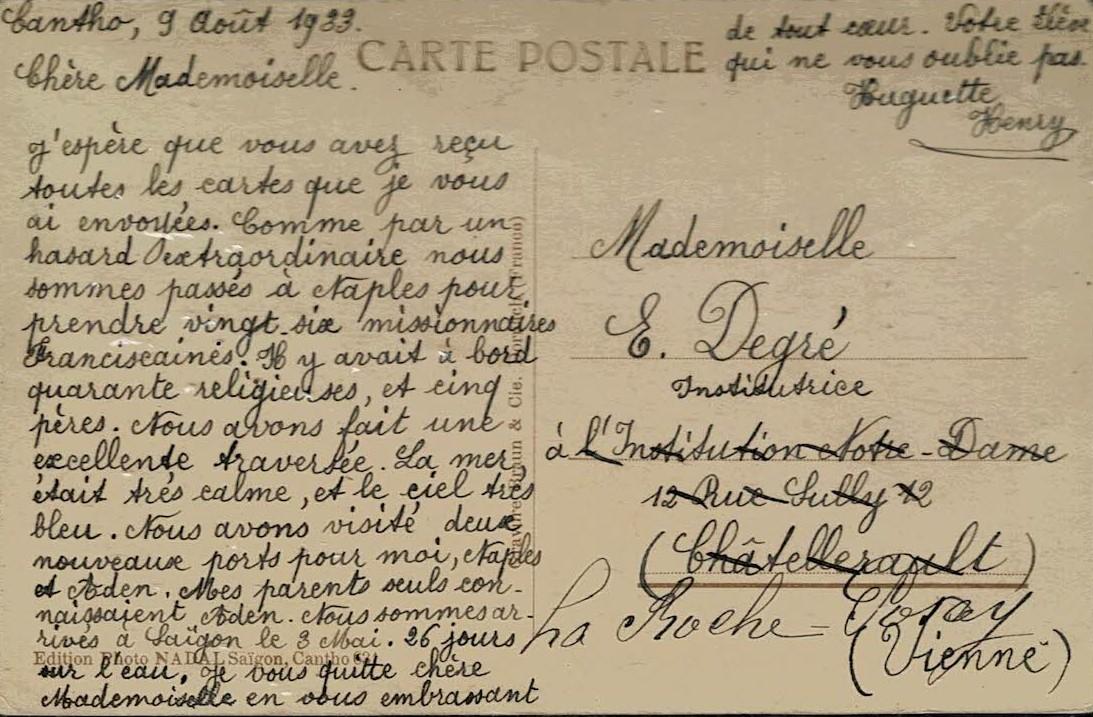 Cantho, 9 Août 1933.
CARTE POSTALE
Chère Mademoiselle.
j'espère que vous avez reçu
toutes les cartes que je vous
ai envoyées. Comme par un
hasard extraordinaire nous
sommes passés à Naples pour
prendre vingt-six missionnaires
Franciscaines. Il y avait à bord
quarante religieuses, et cinq
pères. Nous avons fait une
excellente traversée. La mer,
était très calme, et le ciel très
bleu. Nous avons visité deux
nouveaux ports pour moi, Naples
et Aden. Mes parents seuls con-
naissaient Aden. Nous sommes ar-
rivés à Saïgon le 3 Mai. 26 jours
sur l'eau. Je vous quitte chère
Mademoiselle en vous embrassant
de tout cœur. Votre élève
qui ne vous oublie pas.
Huguette
Henry
Edition Photo NADAL Saïgon, Cantho
Braun & Cie. (France)
Mademoiselle
E. Degré
Institutrice
à l'Institution Notre-Dame
12 Rue Sully 12
(Châtellerault)
La Roche-Posay
(Vienne)